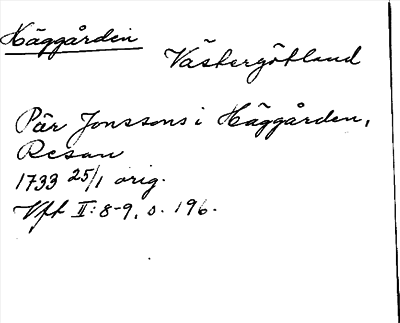 Häggården
Västergötland
Pär Jonssons i Häggården,
Resan
1733 25/1 orig.
Vft II:8-9, s. 196.